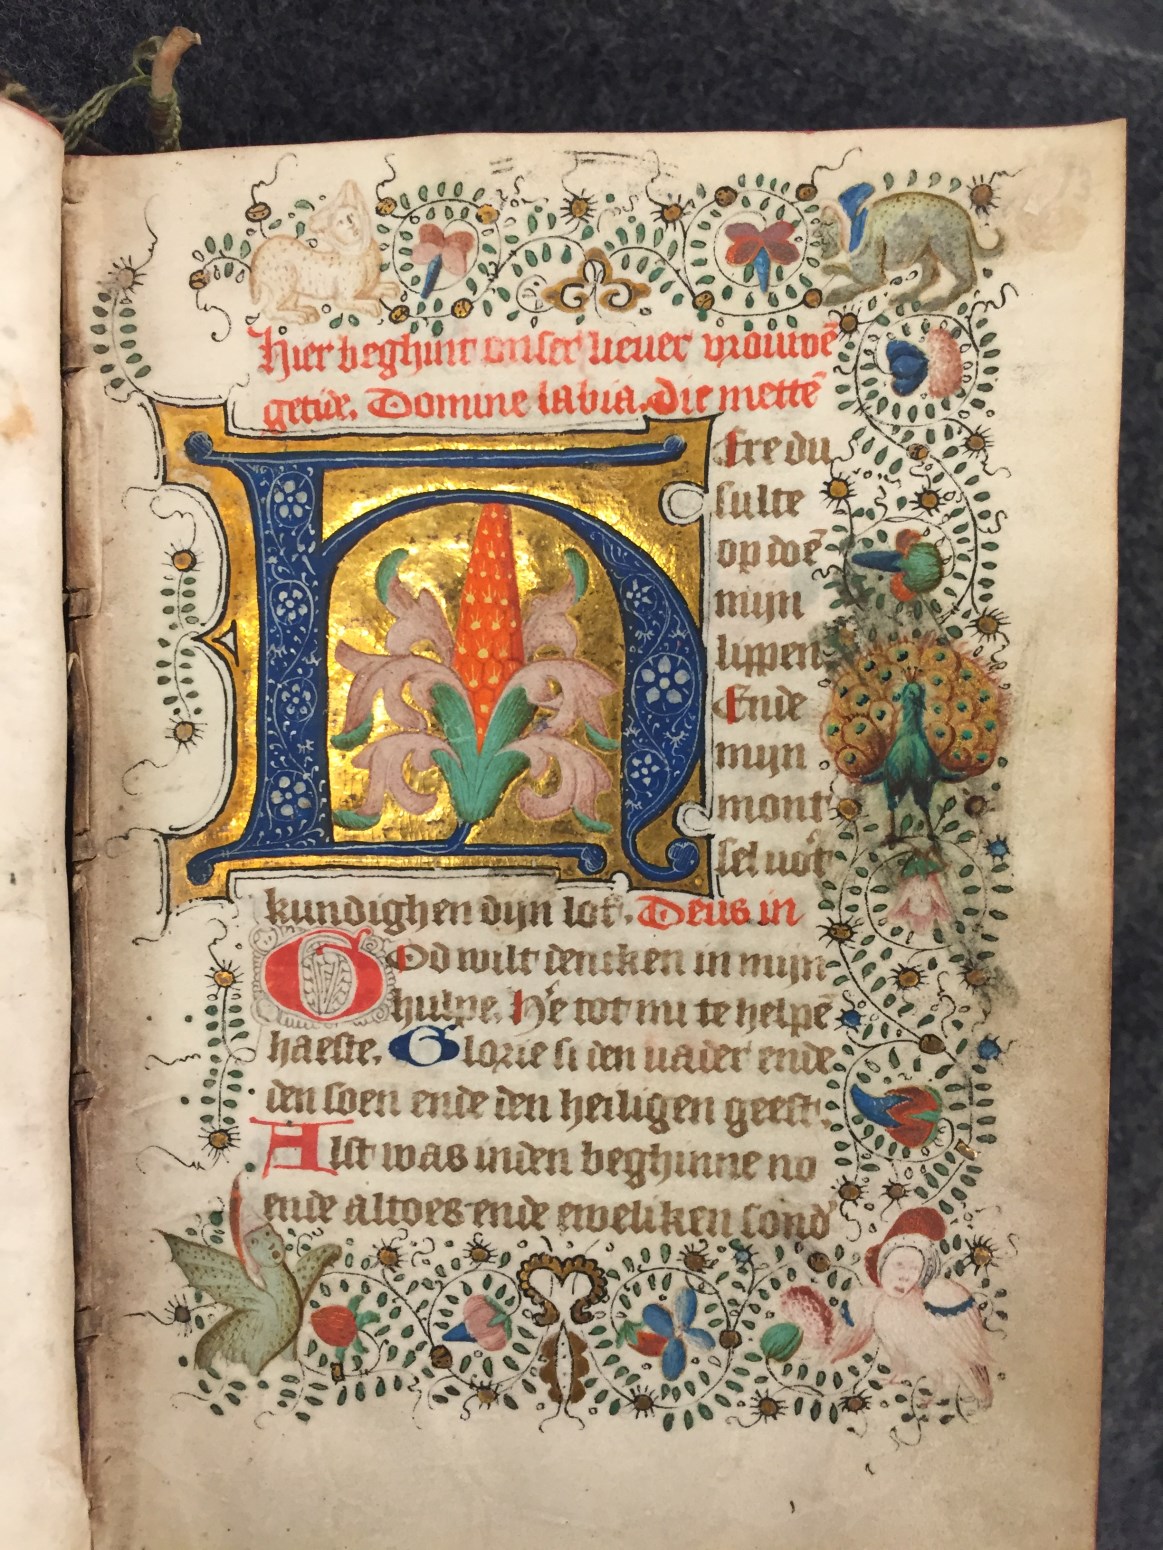 Hier beghint onser lieuer vrouwē
getide. Domine labia. die mettē
Here du
sulte
op doē
mijn
lippen
Ende
mijn
mont
sel uōt
kundighen dijn lof. Deus in
God wilt dencken in mijn
hulpe. He tot mi te helpē
haeste. Glorie si den uader ende
den soen ende den heiligen geest.
Alst was inden beghinne nv
ende altoes ende eweliken sond'